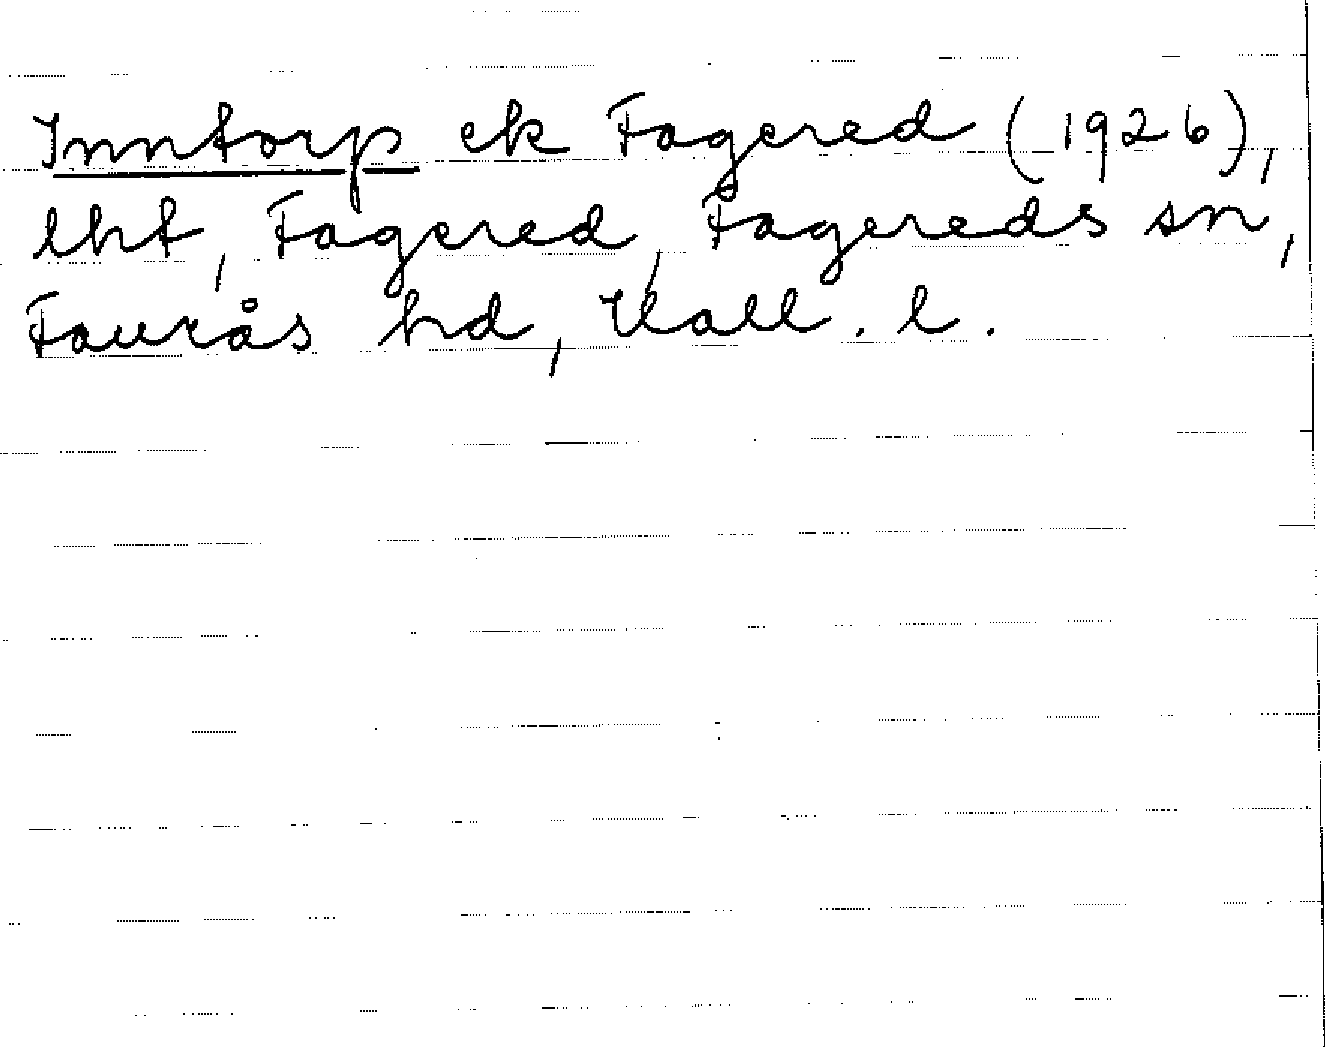 Inntorp ek Fagered (1926),
lht, Fagered, Fagereds sn,
Faurås hd, Hall. l.